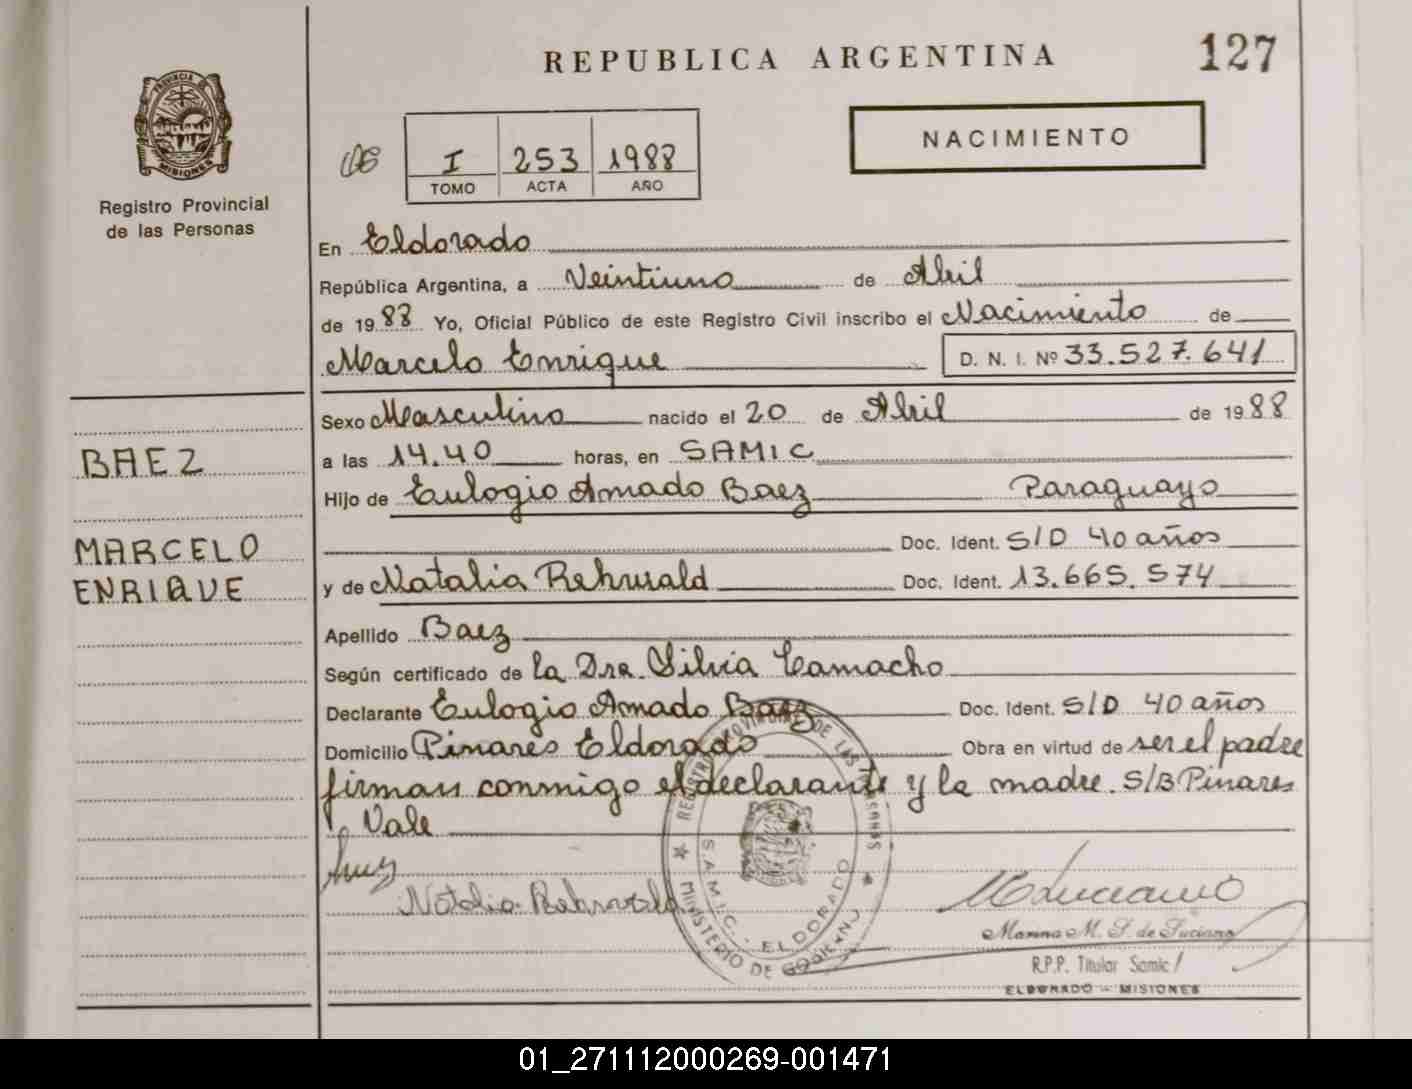 REPUBLICA ARGENTINA
127
PROVINCIA DE
MISIONES
Registro Provincial
de las Personas
I 253 1988
TOMO ACTA AÑO
NACIMIENTO
En Eldorado
República Argentina, a Veintiuno de Abril
de 1988 Yo, Oficial Público de este Registro Civil inscribo el Nacimiento de
Marcelo Enrique D. N. I. Nº 33.527.641
Sexo Masculino nacido el 20 de Abril de 1988
BAEZ
a las 14.40 horas, en SAMIC
Hijo de Eulogio Amado Baez Paraguayo
MARCELO
Doc. Ident. S/D 40 años
ENRIQUE
y de Natalia Rehwald Doc. Ident. 13.665.574
Apellido Baez
Según certificado de la Dra. Silvia Camacho
Declarante Eulogio Amado Baez Doc. Ident. S/D 40 años
Domicilio Pinares Eldorado Obra en virtud de ser el padre
firman conmigo el declarante y la madre. S/B Pinares
Vale
Natalia Rehwald
REGISTRO PROVINCIAL DE LAS PERSONAS
S.A.M.I.C. - ELDORADO
MINISTERIO DE GOBIERNO
Marina M. S. de Luciano
R.P.P. Titular Samic
ELDORADO - MISIONES
01_271112000269-001471